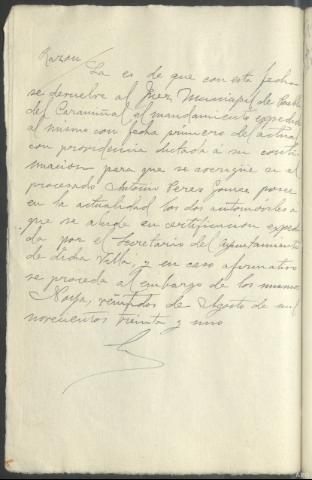 Razon/
La es de que con esta fecha
se devuelve al Juez Municipal de Puebla
del Caramiñal el mandamiento expedido
al mismo con fecha primero del actual
con providencia dictada á su conti-
nuacion para que se averigüe si el
procesado Antonio Perez Gomez posee
en la actualidad los dos automóviles a
que se alude en certificacion expedi-
da por el Secretario del Ayuntamiento
de dicha Villa, y en caso afirmativo
se proceda al embargo de los mismos
Noya, veintidos de Agosto de mil
novecientos treinta y uno